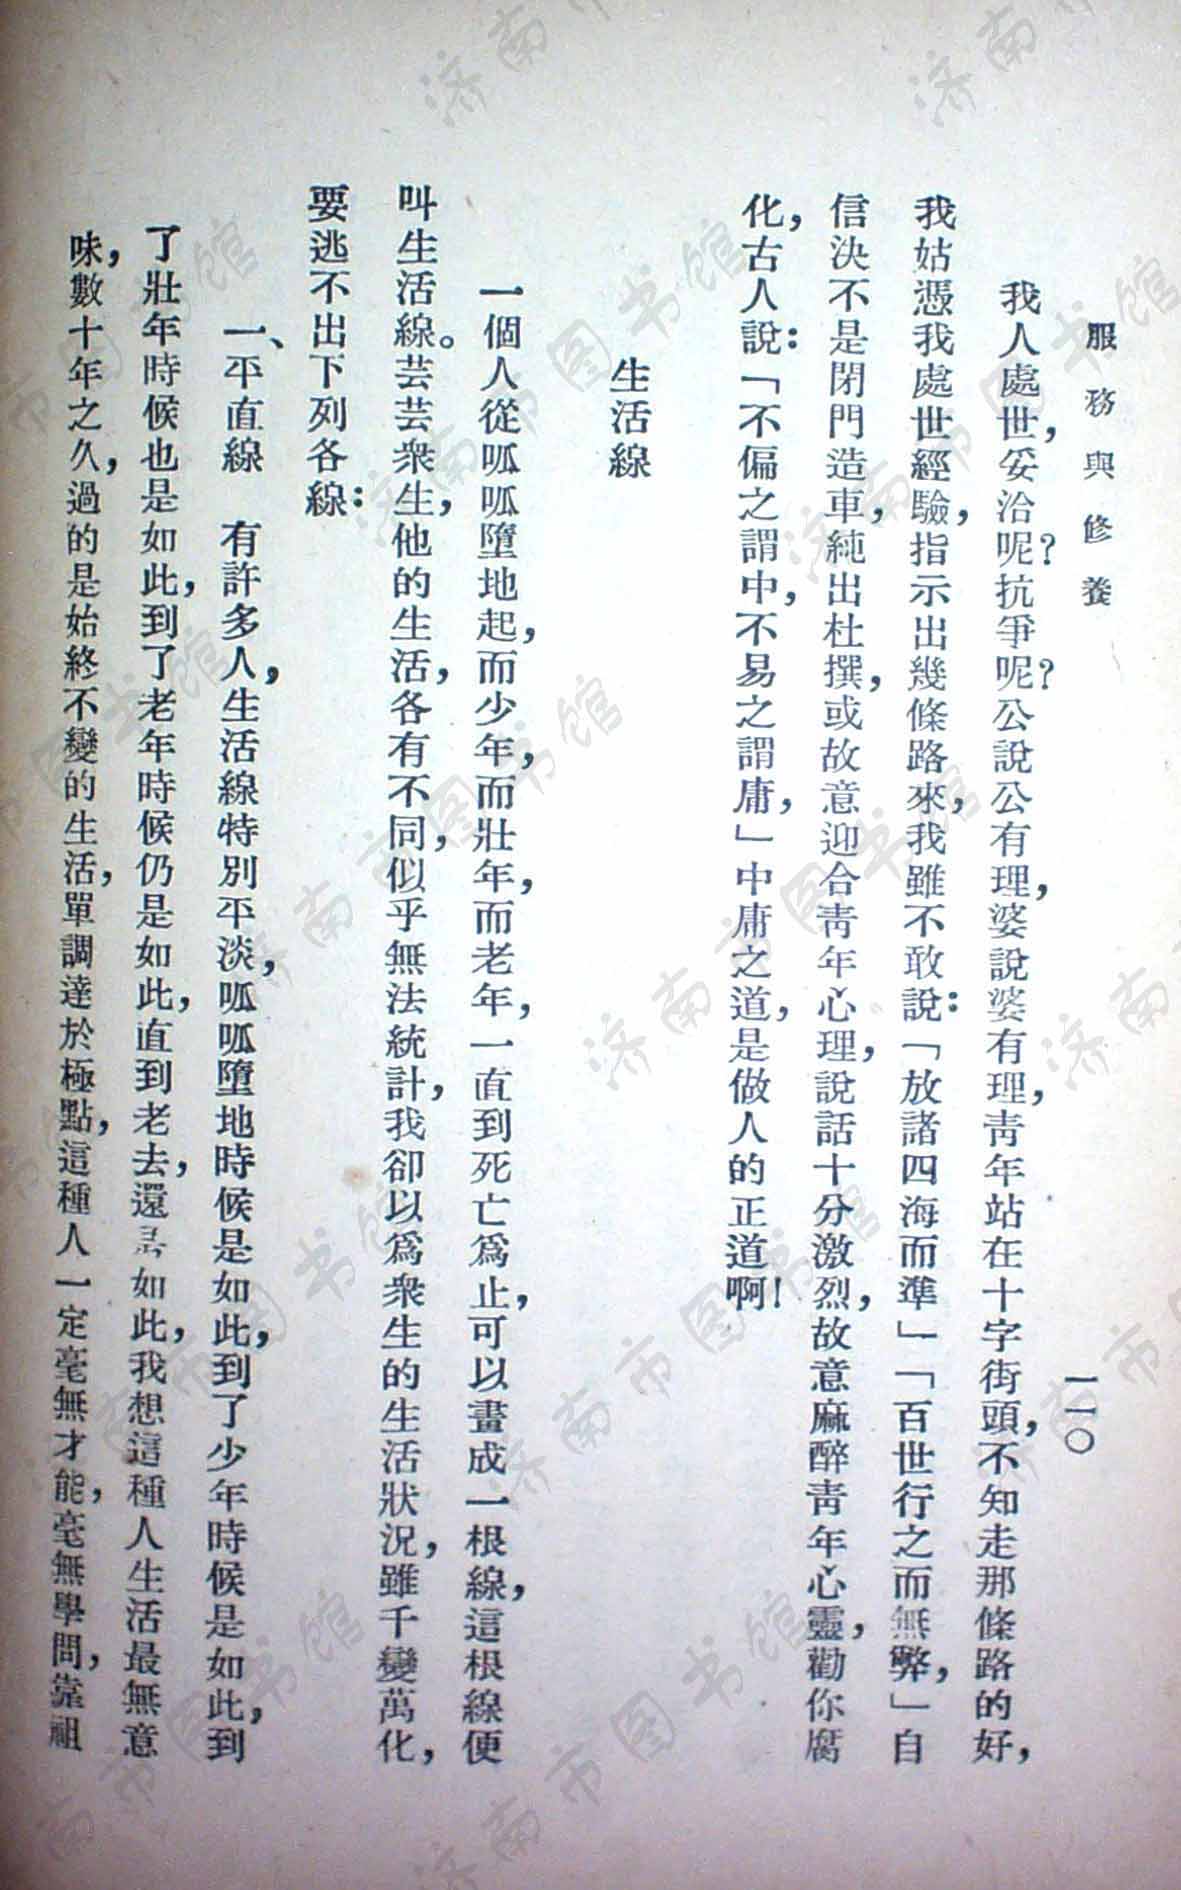 服務與修養
一一〇
我人處世，妥洽呢？抗爭呢？公說公有理，婆說婆有理，青年站在十字街頭，不知走那條路的好，
我姑憑我處世經驗，指示出幾條路來，我雖不敢說：「放諸四海而準」「百世行之而無弊，」自
信決不是閉門造車，純出杜撰，或故意迎合青年心理，說話十分激烈，故意麻醉青年心靈，勸你腐
化，古人說：「不偏之謂中，不易之謂庸，」中庸之道，是做人的正道啊！
生活線
一個人從呱呱墮地起，而少年，而壯年，而老年，一直到死亡爲止，可以畫成一根線，這根線便
叫生活線。芸芸衆生，他的生活，各有不同，似乎無法統計，我卻以爲衆生的生活狀況，雖千變萬化，
要逃不出下列各線：
一、平直線　有許多人，生活線特別平淡，呱呱墮地時候是如此，到了少年時候是如此，到
了壯年時候也是如此，到了老年時候仍是如此，直到老去，還是如此，我想這種人生活最無意
味，數十年之久，過的是始終不變的生活，單調達於極點，這種人一定毫無才能，毫無學問，靠祖
济南市图书馆